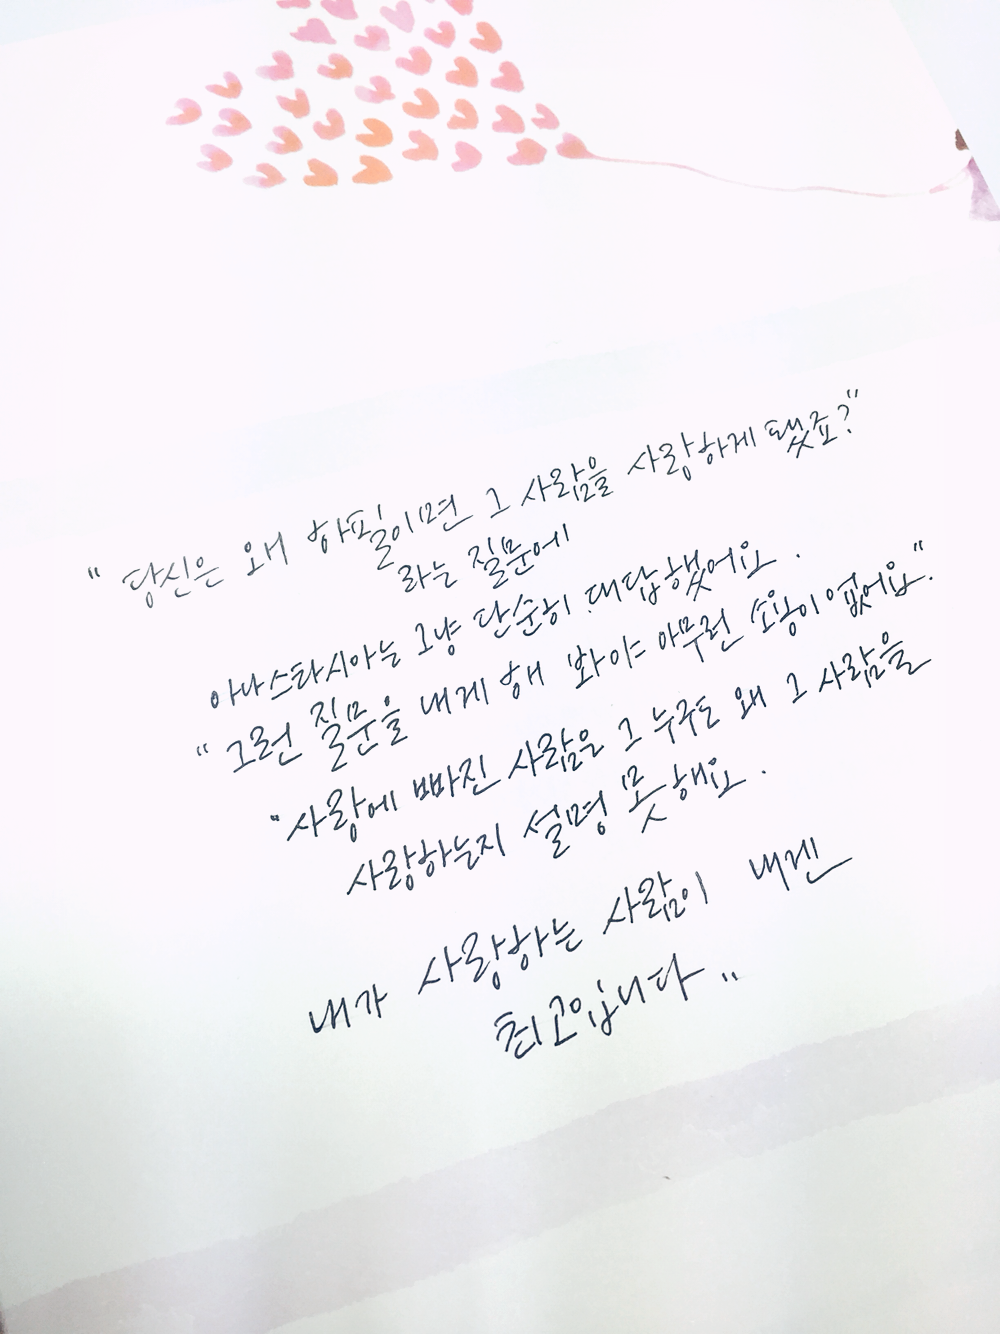 "당신은 왜 하필이면 그 사람을 사랑하게 됐죠?"
라는 질문에
아나스타시아는 그냥 단순히 대답했어요.
"그런 질문을 내게 해 봐야 아무런 소용이 없어요."
"사랑에 빠진 사람은 그 누구도 왜 그 사람을
사랑하는지 설명 못해요.
내가 사랑하는 사람이 내겐
최고입니다"